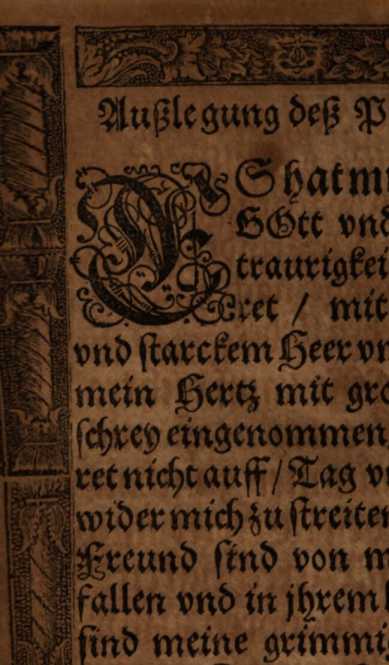 Außlegung deß P
ES hat mi
GOtt vnd
traurigkei
ret / mit
vnd starckem Heer vn
mein Hertz mit gro
schrey eingenommen
ret nicht auff / Tag v
wider mich zu streite
Freund sind von m
fallen vnd in jhrem
sind meine grimmi